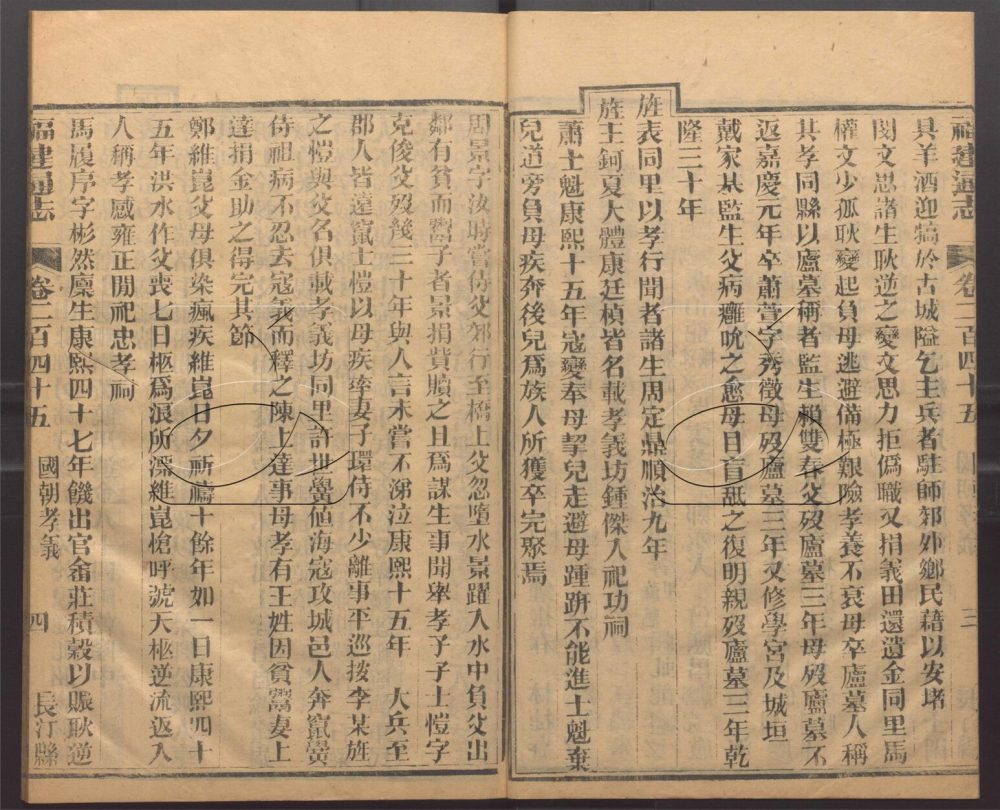 福建通志 卷二百四十五 三
具羊酒迎犒於古城隘乞主兵者駐師郊外鄉民藉以安堵
閔文思諸生耿逆之變文思力拒僞職又捐義田還遺金同里馬
權文少孤耿變起負母逃避備極艱險孝養不衰母卒廬墓人稱
其孝同縣以廬墓稱者監生賴雙春父歿廬墓三年母歿廬墓不
返嘉慶元年卒蕭萱字秀徵母歿廬墓三年又修學宮及城垣
戴家棊監生父病癰吮之愈母目盲舐之復明親歿廬墓三年乾
隆三十年
旌表同里以孝行聞者諸生周定鼎順治九年
旌王鈳夏大體康廷楨皆名載孝義坊鍾傑人祀功祠
蕭士魁康熙十五年寇變奉母挈兒走避母踵趼不能進士魁棄
兒道旁負母疾奔後兒爲族人所獲卒完聚焉
周景字汝時嘗侍父郊行至橋上父忽墮水景躍入水中負父出
鄰有貧而鬻子者景捐貲贖之且爲謀生事聞舉孝子子士愷字
克俊父歿幾三十年與人言未嘗不涕泣康熙十五年 大兵至
郡人皆逹竄士愷以母疾率妻子環侍不少離事平巡按李某旌
之愷與父名俱載孝義坊同里許世黌值海寇攻城邑人奔竄黌
侍祖病不忍去寇義而釋之陳上達事母孝有王姓因貧鬻妻上
達捐金助之得完其節
鄭維崑父母俱染瘋疾維崑日夕祈禱十餘年如一日康熙四十
五年洪水作父喪七日柩爲浪所漂維崑愴呼號天柩逆流返入
人稱孝感雍正閒祀忠孝祠
馬履序字彬然廩生康熙四十七年饑出官畬莊積穀以賑耿逆
福建通志 卷二百四十五 國朝孝義 四 長汀縣